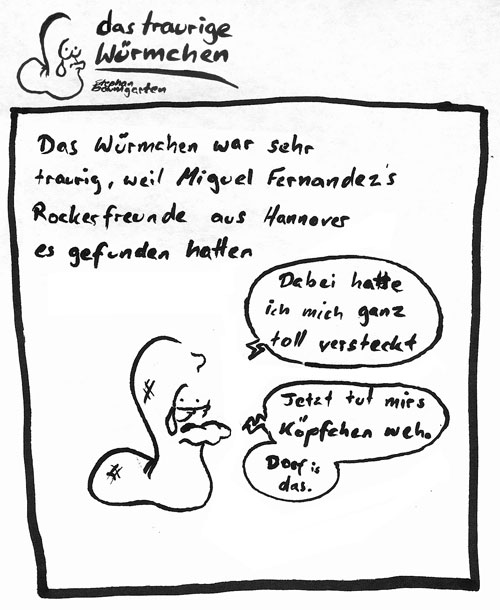 das traurige
Würmchen
Stephan
Baumgarten
Das Würmchen war sehr
traurig, weil Miguel Fernandez's
Rockerfreunde aus Hannover
es gefunden hatten
Dabei hatte
ich mich ganz
toll versteckt
Jetzt tut mirs
Köpfchen weh.
Doof is
das.